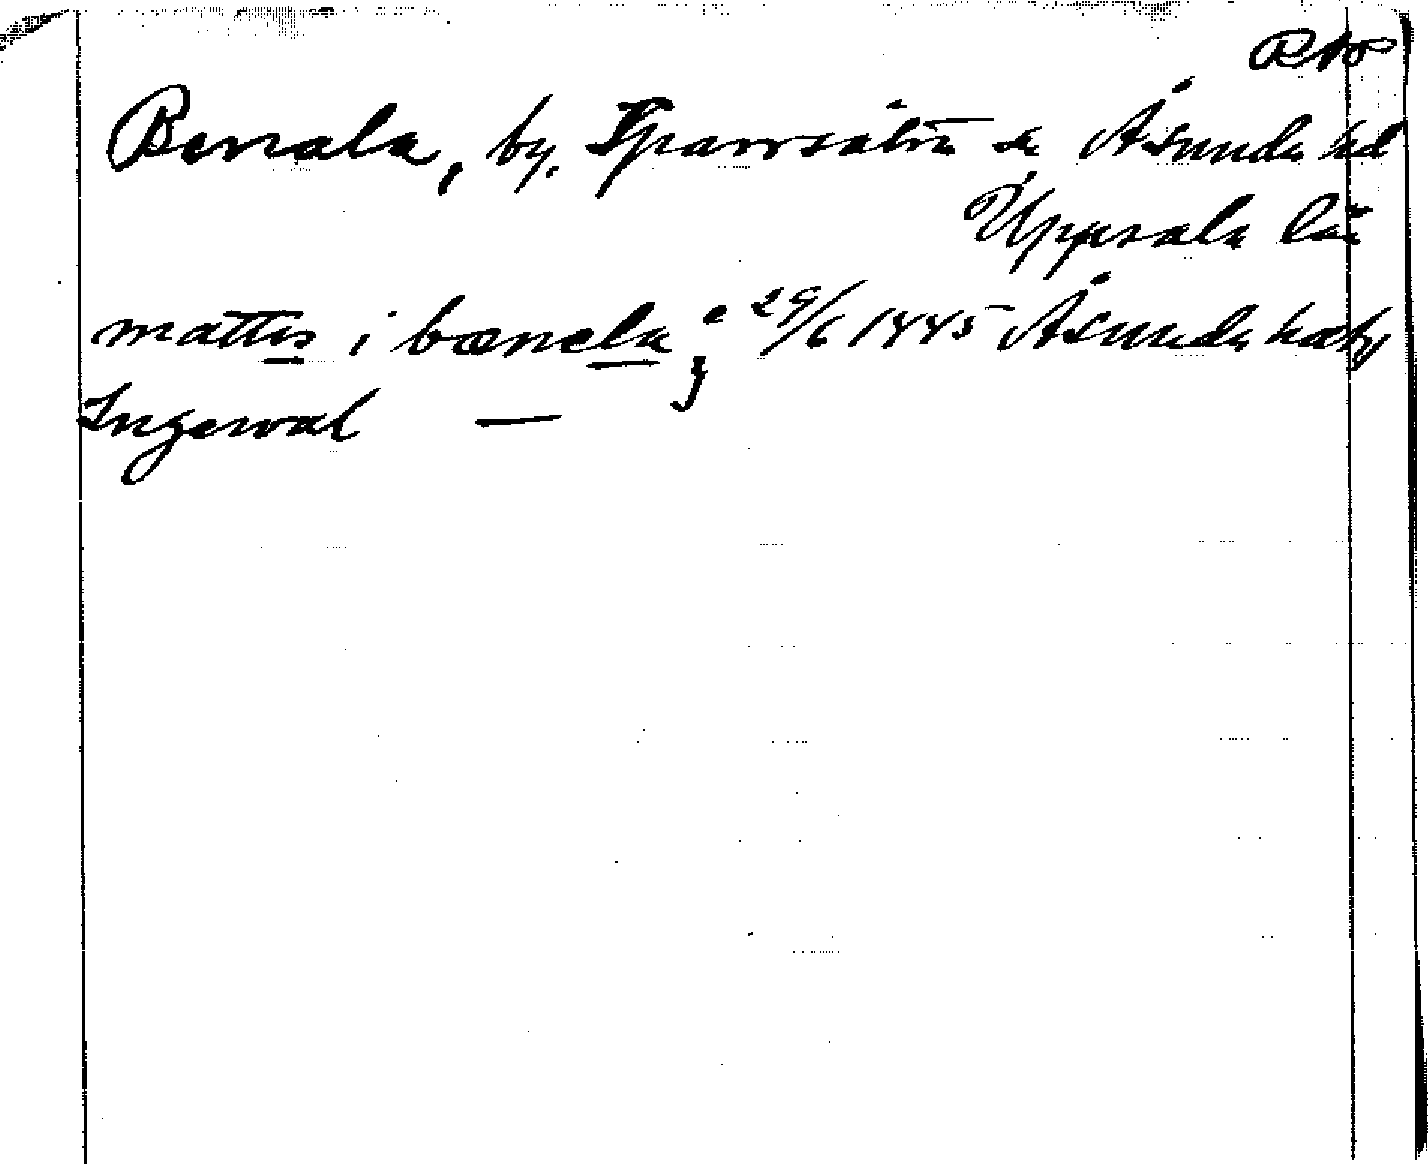 RAp
Berrala, by. Sparrsätra sn Åsunda hd
Uppsala län
mattis i bœnela; 29/6 1445 Åsunda häby
Ingerval —